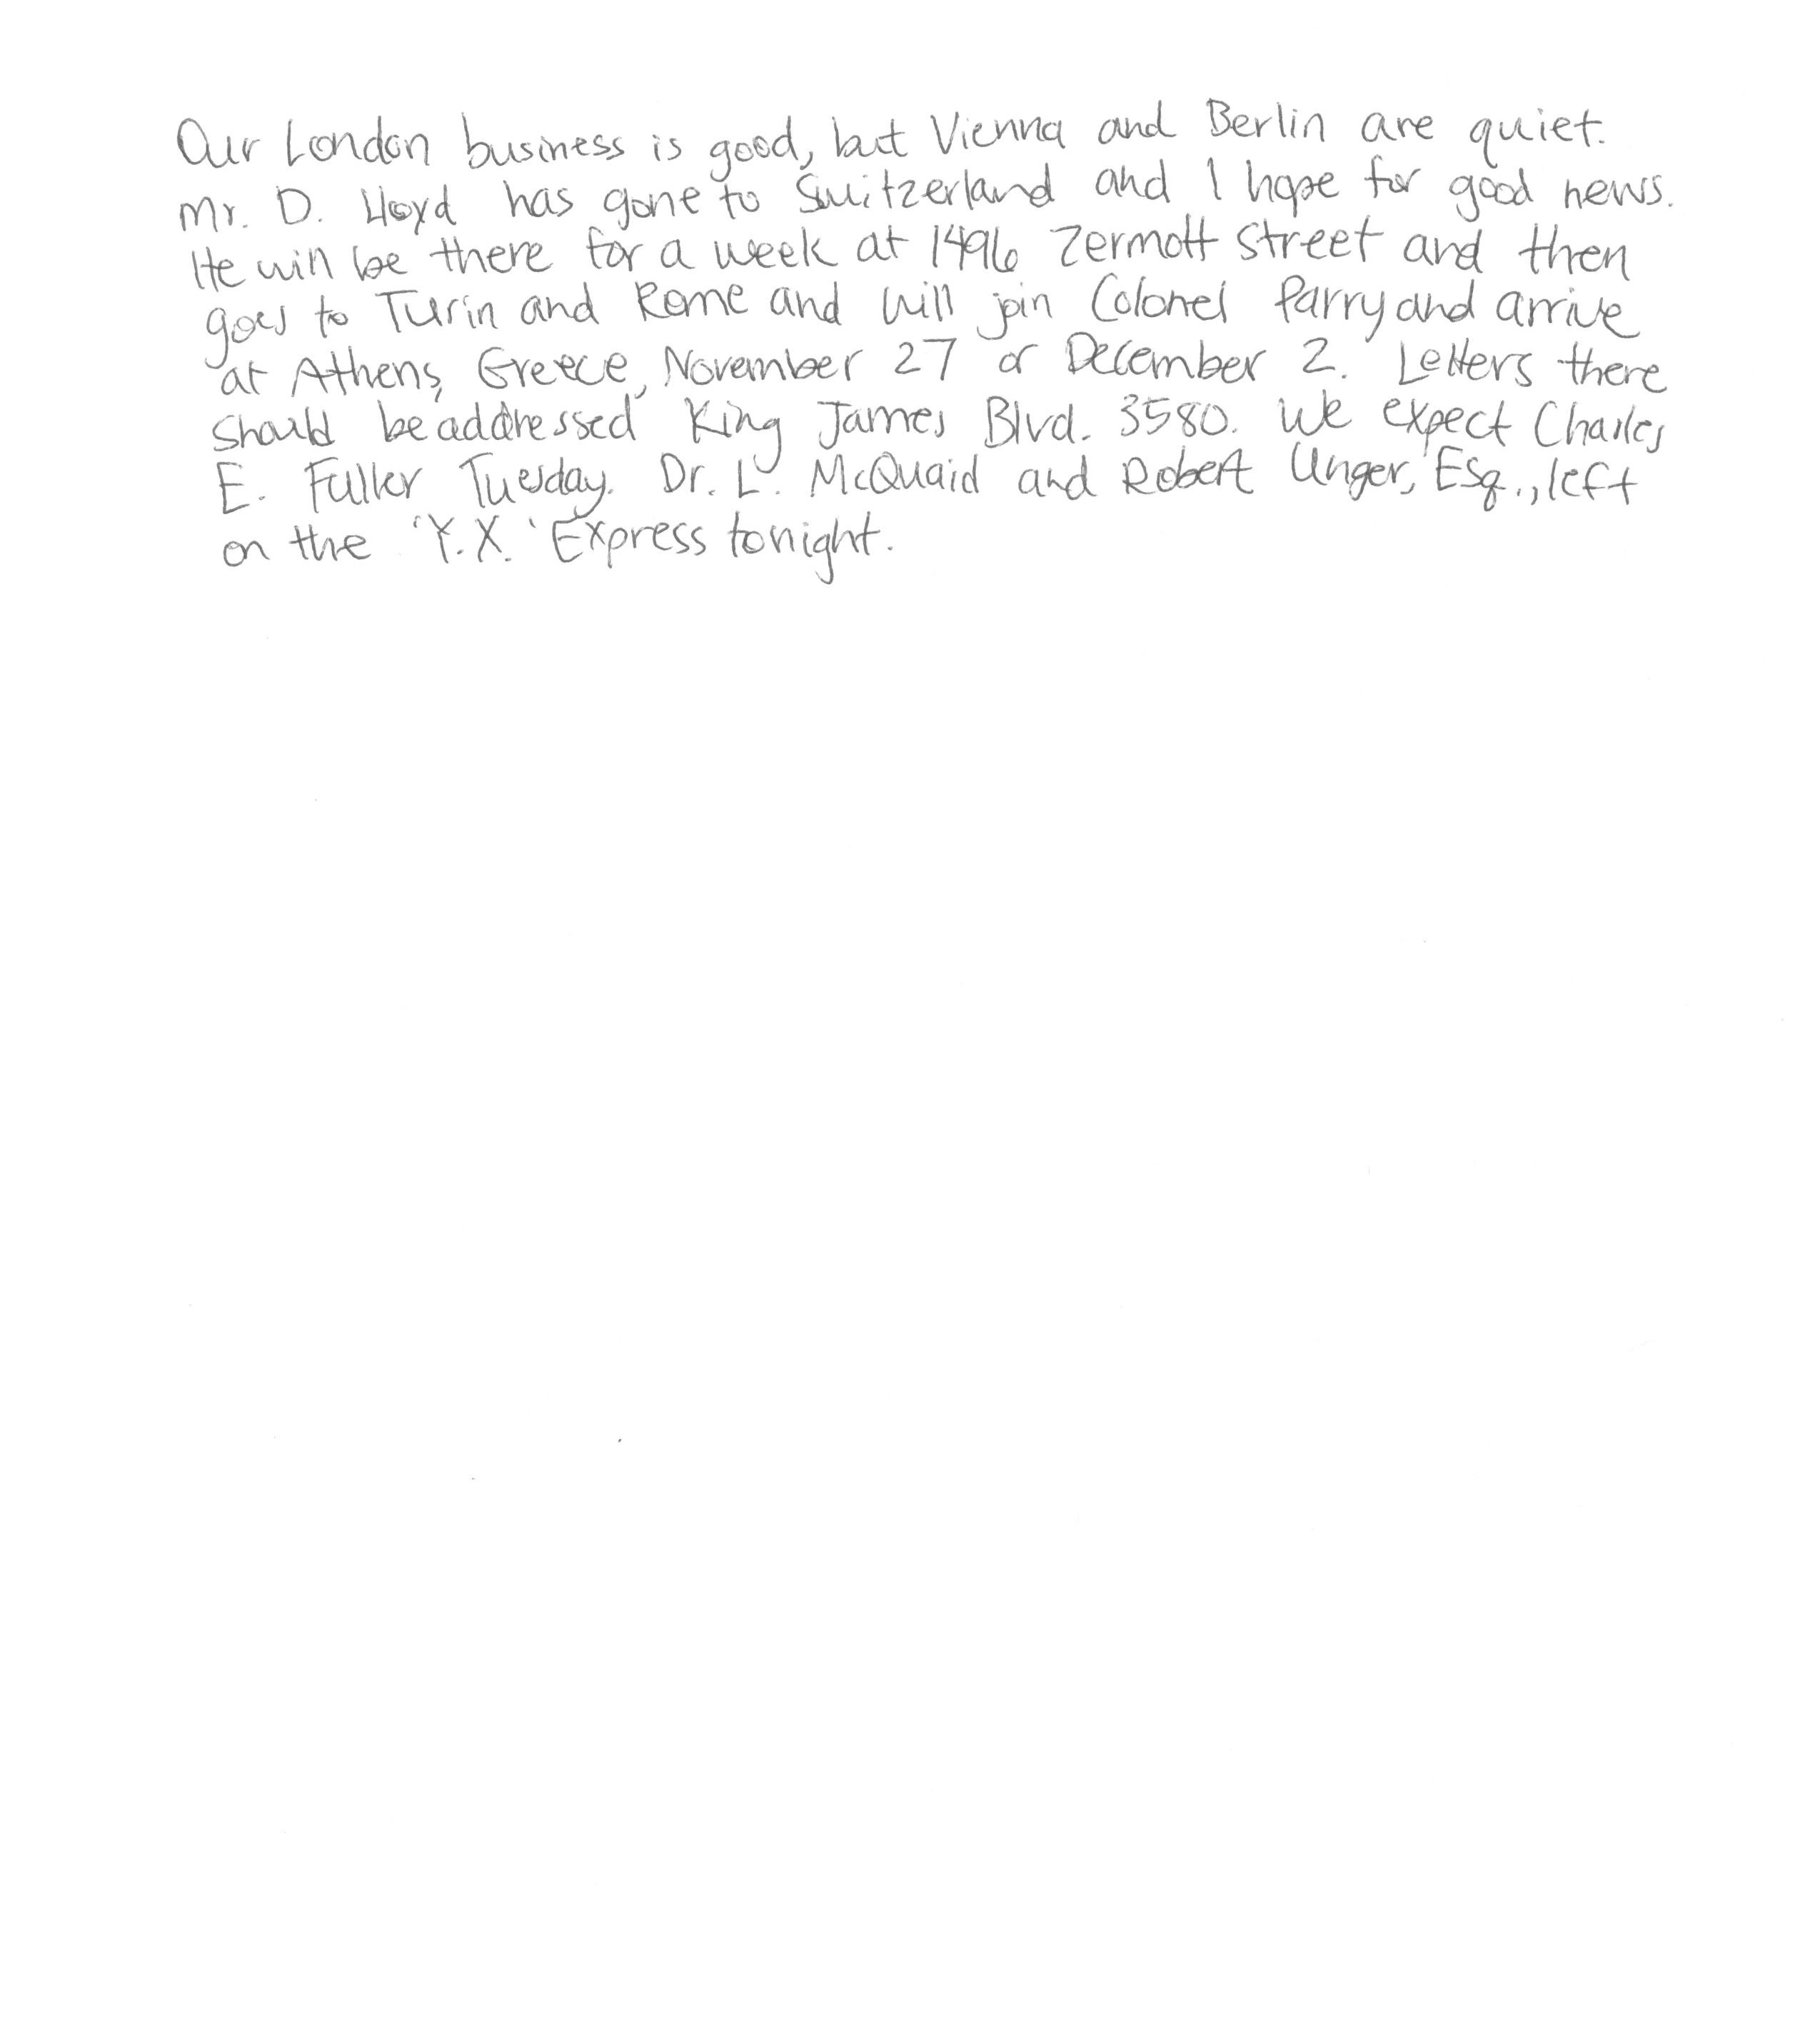 Our London business is good, but Vienna and Berlin are quiet.
Mr. D. Lloyd has gone to Switzerland and I hope for good news.
He will be there for a week at 1496 Zermott Street and then
goes to Turin and Rome and will join Colonel Parry and arrive
at Athens, Greece, November 27 or December 2. Letters there
should be addressed King James Blvd. 3580. We expect Charles
E. Fuller Tuesday. Dr. L. McQuaid and Robert Unger, Esq., left
on the 'Y.X.' Express tonight.